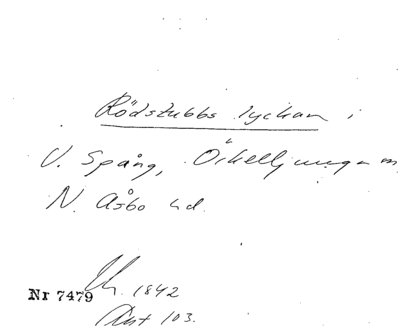 Rödstubbs lyckan i
V. Spång, Örkelljunga
N. Åsbo hd.
1842
Nr 7479
Akt 103.